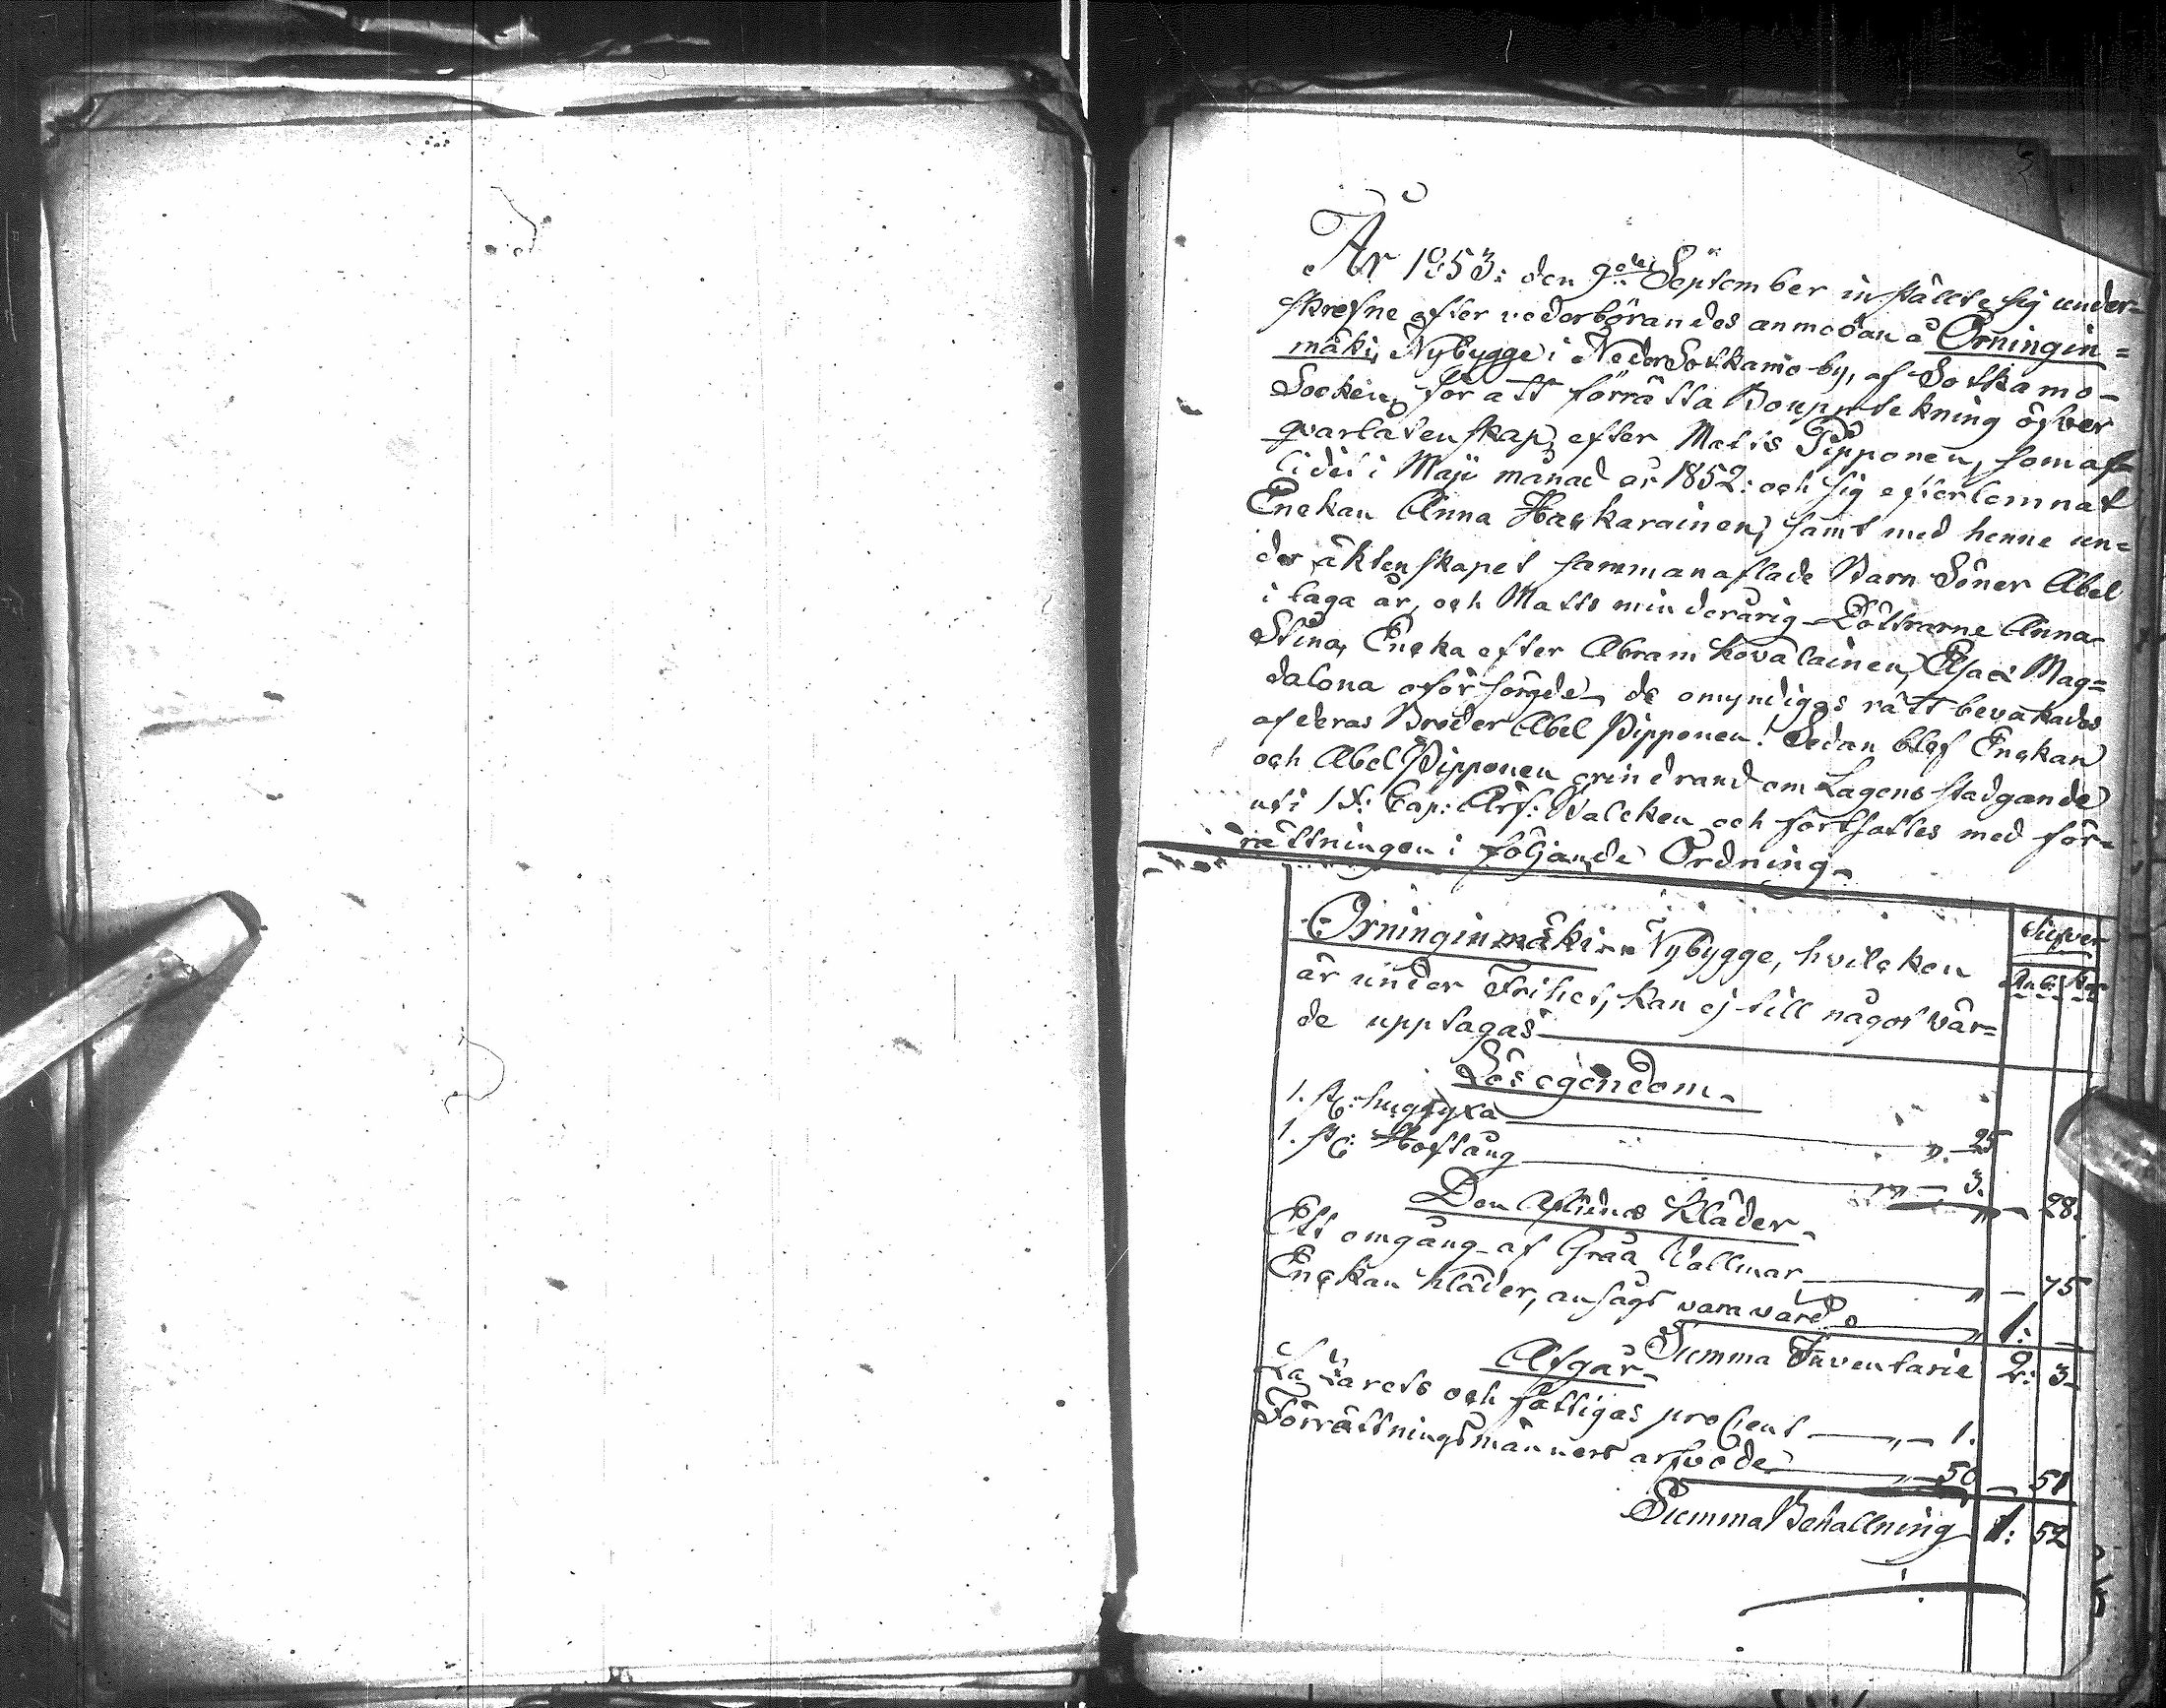 År 1853: den 9de September instälte sig under=
skrefne efter vederbörandes anmodan å Örningin=
mäki Nybygge i NederSotkamo by, af Sotkamo
Socken, för att förrätta Boupptekning öfver
qvarlatenskap, efter Matts Pipponen, som af=
lidit i Maji månad år 1852: och sig efterlemnat
Enckan Anna Hackarainen, samt med henne un=
der äktenskapet sammanaflade Barn Söner Abel
i laga år, och Matts minderårig Döttrarne Anna
Stina, Encka efter Abram Kovalainen, Elsa & Mag=
dalena oförsörgde, de omyndigas rätt bevakades
af deras Broder Abel Pipponen. Sedan blef Enckan
och Abel Pipponen erindrand om Lagens stadgande
uti Cap: Ärf: Balcken och fortsattes med för=
rättningen i följande Ordning
Silfver
Örninginmäki Nybygge, hvilcken Rub: Kop
är under Frihet, kan ej till något vär=
de upptagas
Lös egendom
1. st: huggyxa " 25
1. st: Hoftång " 3. " 28.
Den Aflidnes Kläder
Ett omgång af Grå Vallmar " 75
Enckan kläder, ansagt vara värde " 1: –
Summa Inventarie 2: 3
Afgår
Lazarets och fattigas procent " 1.
Förrättningsmänners arfvode " 50 – 51
Summa Behållning 1: 52